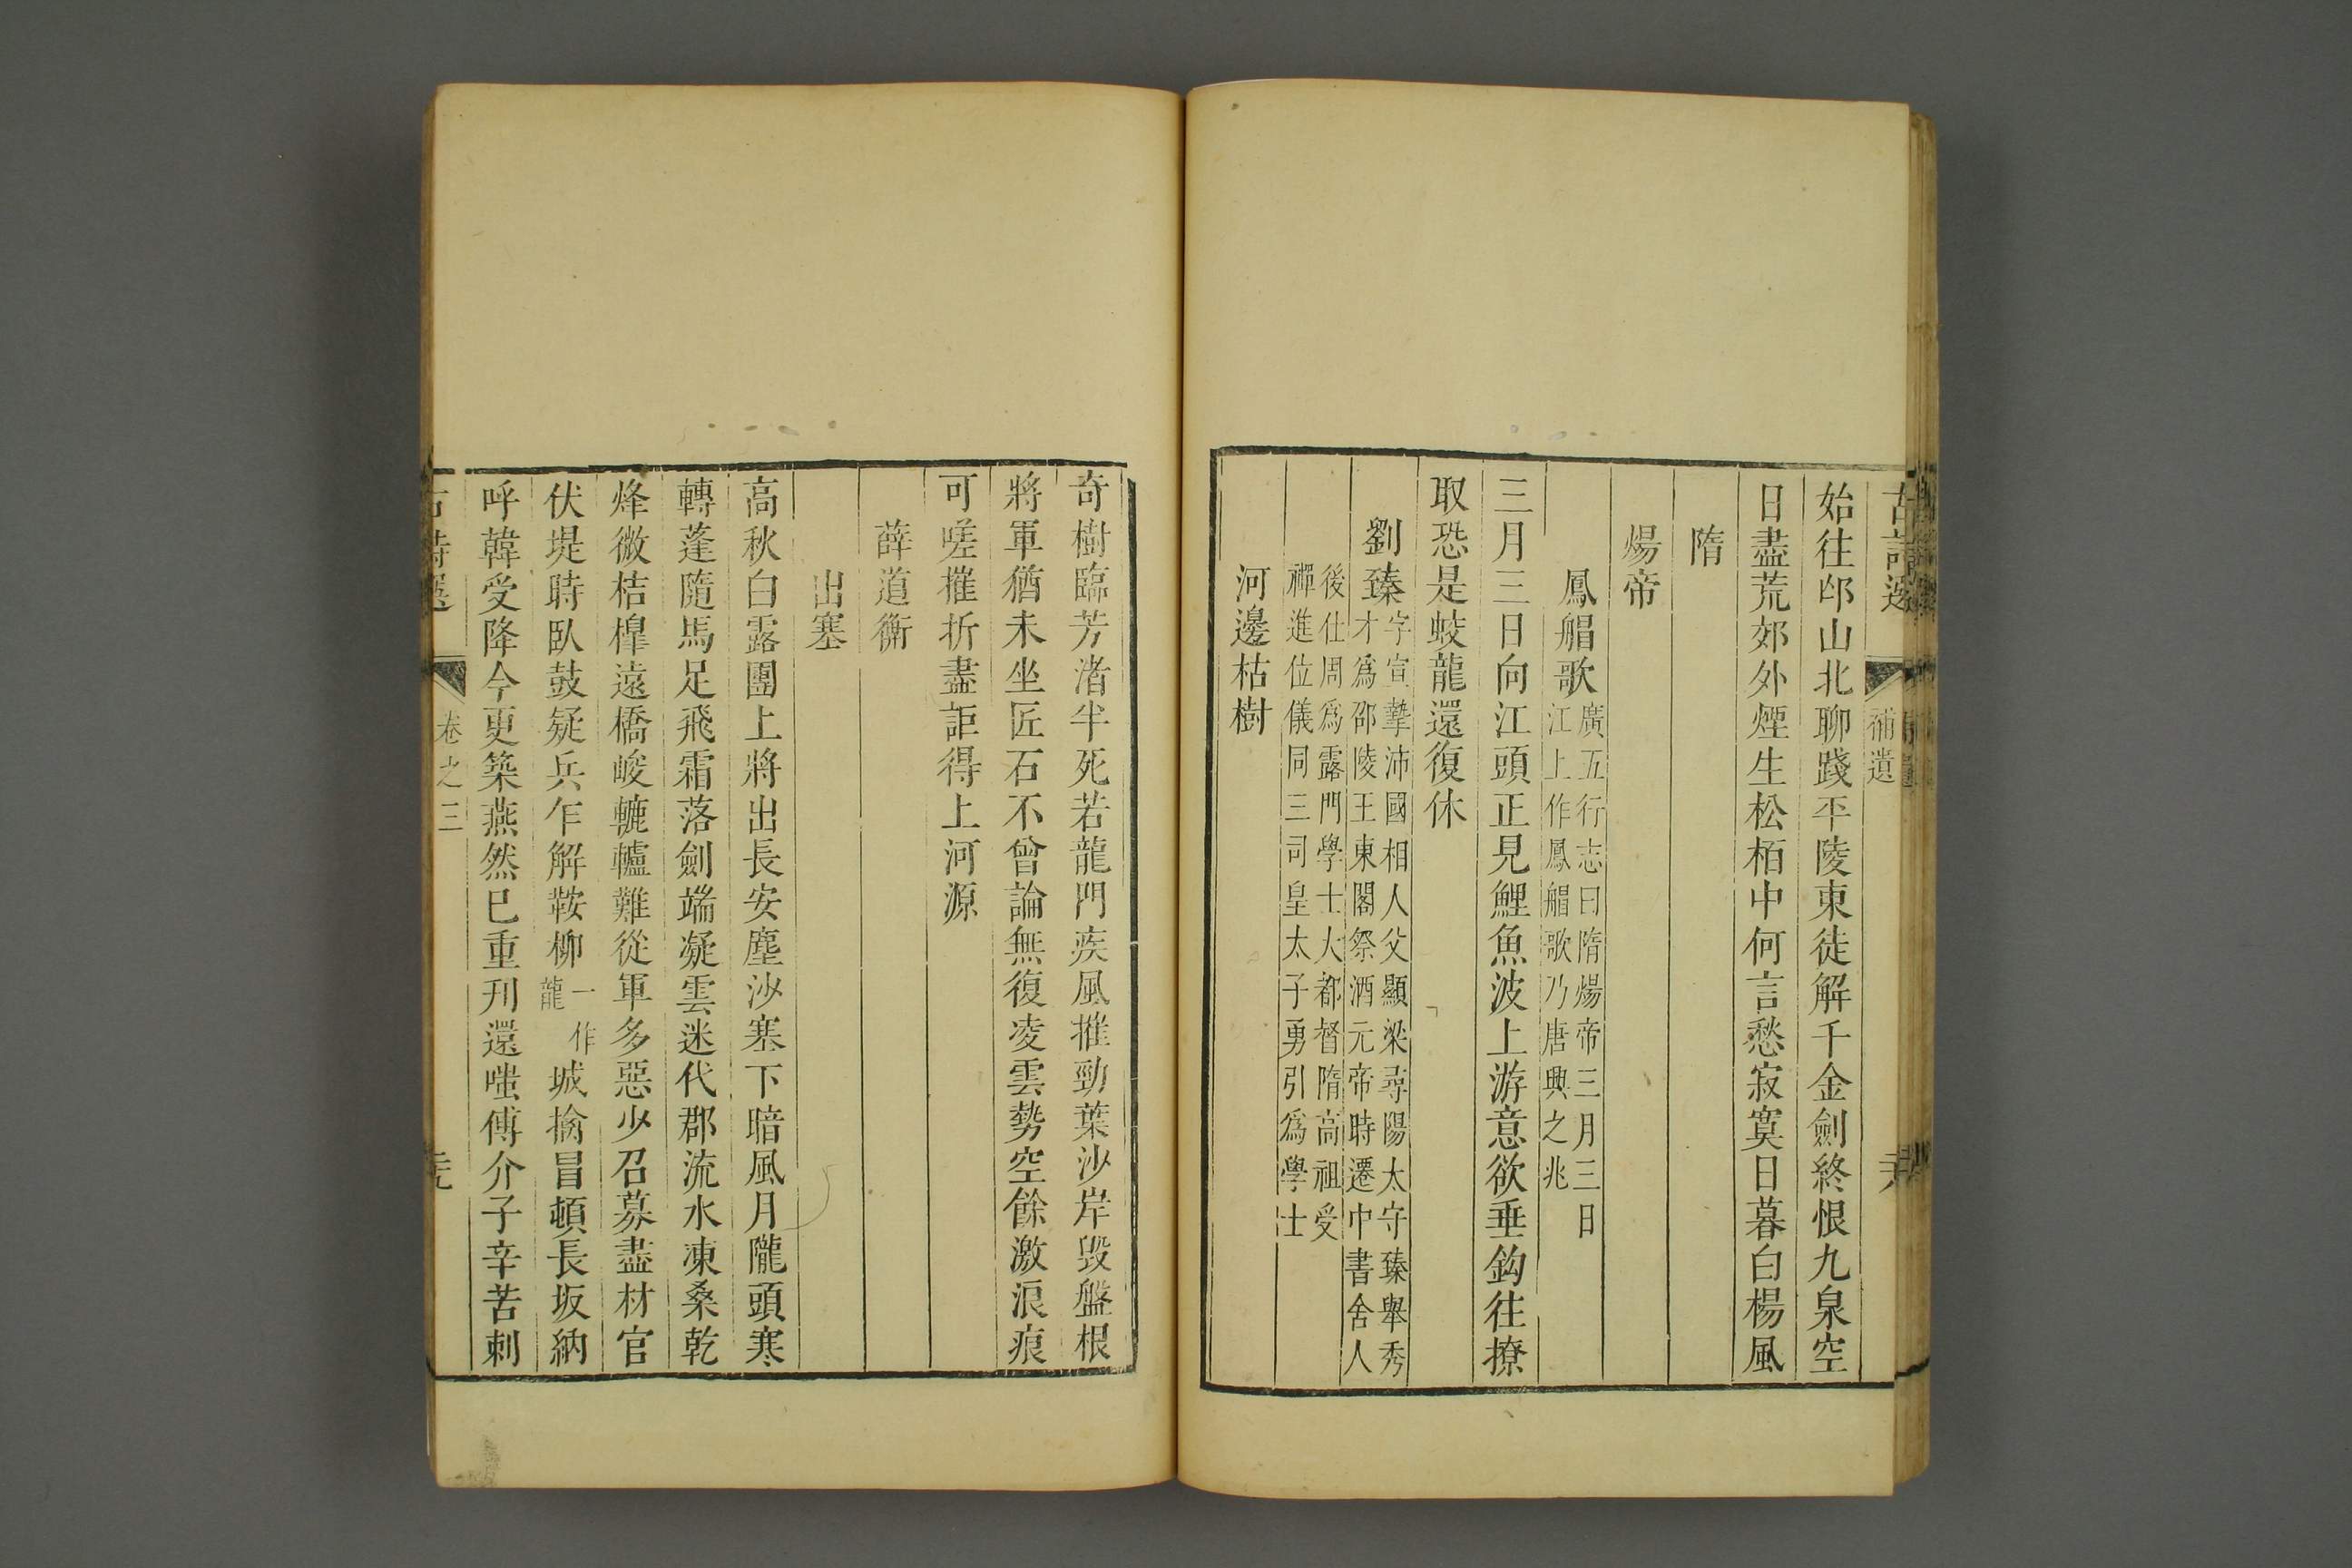 補遺
始往邙山北聊踐平陵東徒解千金劍終恨九泉空
日盡荒郊外煙生松栢中何言愁寂寞日暮白楊風
隋
煬帝
鳳艒歌廣五行志曰隋煬帝三月三日
江上作鳳艒歌乃唐興之兆
三月三日向江頭正見鯉魚波上游意欲垂鈎往撩
取恐是蛟龍還復休
劉臻字宣摯沛國相人父顯梁尋陽太守臻舉秀
才爲邵陵王東閣祭酒元帝時遷中書舍人
後仕周爲露門學士大都督隋高祖受
禪進位儀同三司皇太子勇引爲學士
河邊枯樹
奇樹臨芳渚半死若龍門疾風摧勁葉沙岸毀盤根
將軍猶未坐匠石不曾論無復凌雲勢空餘激浪痕
可嗟摧折盡詎得上河源
薛道衡
出塞
高秋白露團上將出長安塵沙塞下暗風月隴頭寒
轉蓬隨馬足飛霜落劍端凝雲迷代郡流水凍桑乾
烽微桔橰遠橋峻轆轤難從軍多惡少召募盡材官
伏堤時臥鼓疑兵乍解鞍柳一作龍城擒冒頓長坂納
呼韓受降今更築燕然已重刊還嗤傅介子辛苦刺
古詩選 卷之三